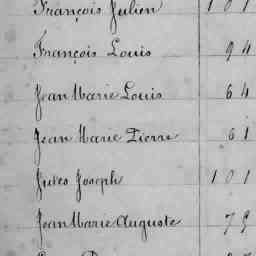 François Julien 101
François Louis 94
Jean Marie Louis 64
Jean Marie Pierre 61
Jules Joseph 101
Jean Marie Auguste 79